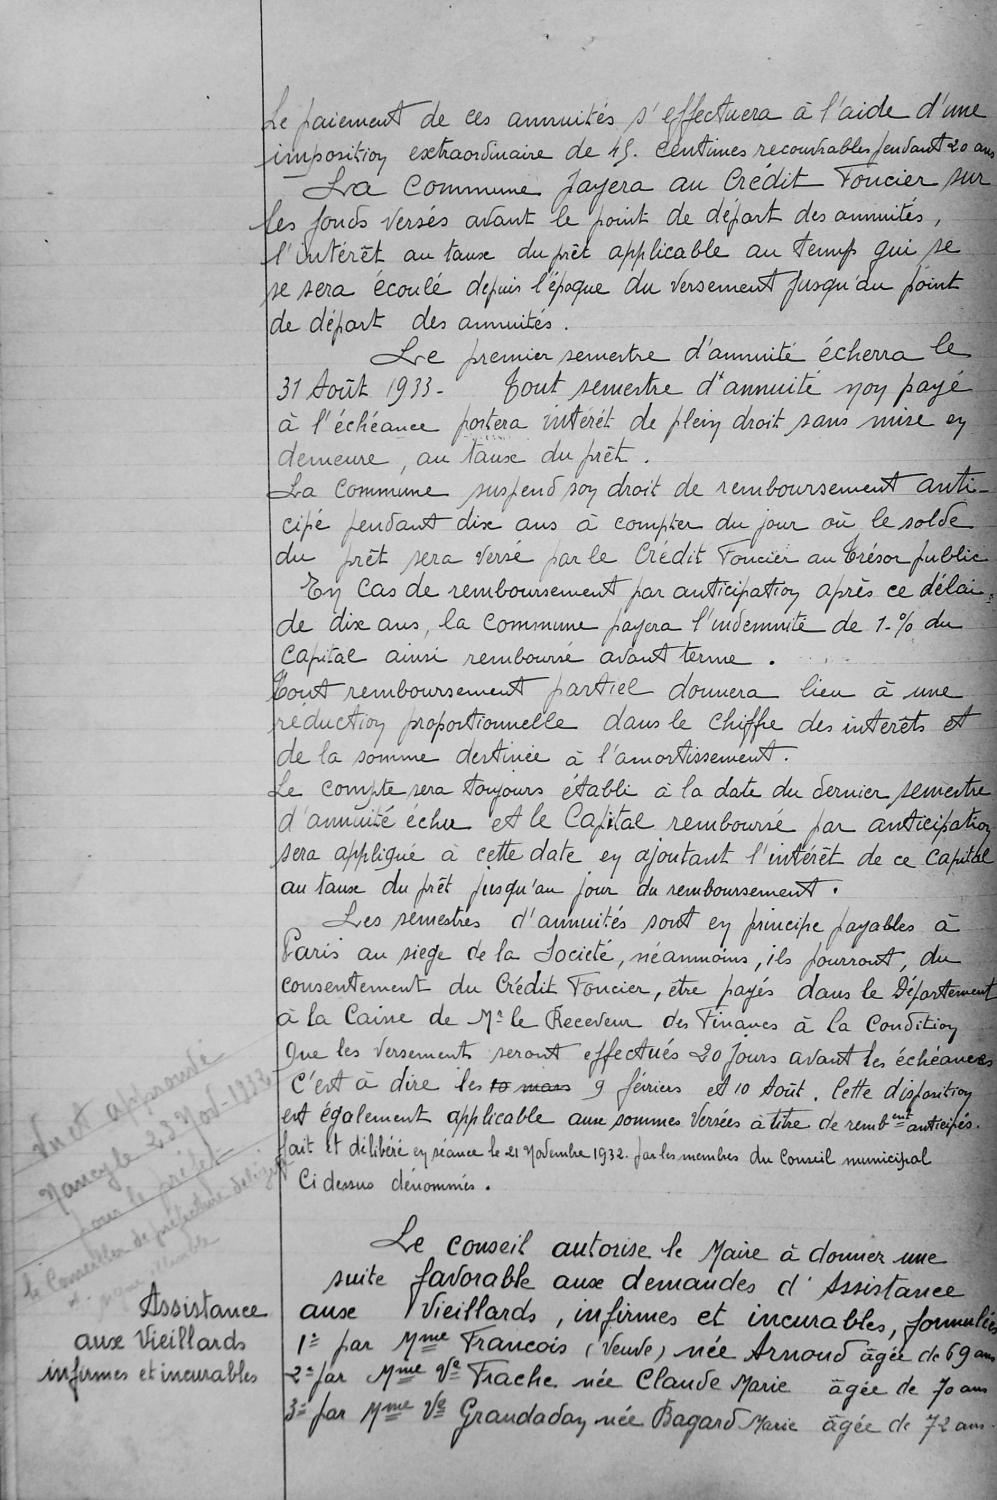 Le paiement de ces annuités s'effectuera à l'aide d'une
imposition extraordinaire de 45. Centimes recouvrables pendant 20 ans
La Commune payera au Crédit Foncier sur
les fonds versés avant le point de départ des annuités,
l'intérêt au taux du prêt applicable au temps qui se
se sera écoulé depuis l'époque du versement jusqu'au point
de départ des annuités.
Le premier semestre d'annuité écherra le
31 Août 1933- Tout semestre d'annuité non payé
à l'échéance portera intérêt de plein droit sans mise en
demeure, au taux du prêt.
La Commune suspend son droit de remboursement anti-
cipé pendant dix ans à compter du jour où le solde
du prêt sera versé par le Crédit Foncier au Trésor public
En Cas de remboursement par anticipation après ce délai
de dix ans, la Commune payera l'indemnité de 1-% du
Capital ainsi remboursé avant terme.
Tout remboursement partiel donnera lieu à une
réduction proportionnelle dans le chiffre des intérêts et
de la somme destinée à l'amortissement.
Le compte sera toujours établi à la date du dernier semestre
d'annuité échu et le Capital remboursé par anticipation
sera appliqué à cette date en ajoutant l'intérêt de ce Capital
au taux du prêt jusqu'au jour du remboursement.
Les semestres d'annuités sont en principe payables à
Paris au siege de la Société, néanmoins, ils pourront, du
consentement du Crédit Foncier, etre payés dans le Département
à la Caisse de Mr le Receveur des Finances à la Condition
que les versements seront effectués 20 jours avant les échéances
C'est à dire les 10 mars 9 février et 10 Août. Cette disposition
est également applicable aux sommes versées à titre de rembent anticipés.
fait et délibéré en séance le 21 Novembre 1932. par les membres du Conseil municipal
Ci dessus dénommés.
Vu et approuvé
Nancy le 23 Nov-1932
pour le préfet
le Conseiller de préfecture délégué
nom illisible
Assistance
aux Vieillards
infirmes et incurables
Le Conseil autorise le Maire à donner une
suite favorable aux demandes d'Assistance
aux Vieillards, infirmes et incurables, formulées
1º par Mme Francois (Veuve) née Arnoud âgée de 69 ans
2º par Mme Ve Frache née Claude Marie âgée de 70 ans
3º par Mme Ve Grandaday née Bagard Marie âgée de 72 ans.